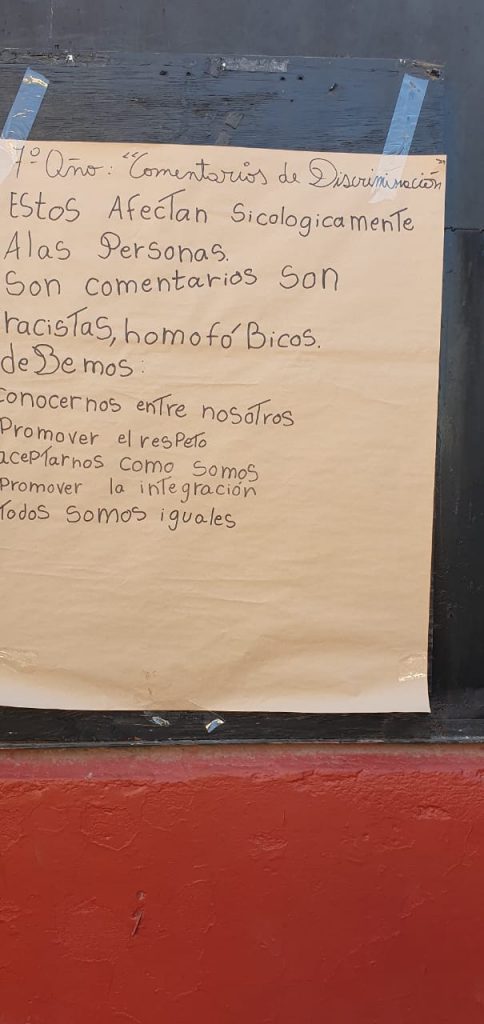 7º Año: "Comentarios de Discriminación"
EStos AfecTan Sicologicamente
Alas Personas.
Son comentarios Son
racistas, homofóBicos.
deBemos:
conocernos entre nosotros
Promover el resPeto
acePtarnos como somos
Promover la integración
Todos somos iguales